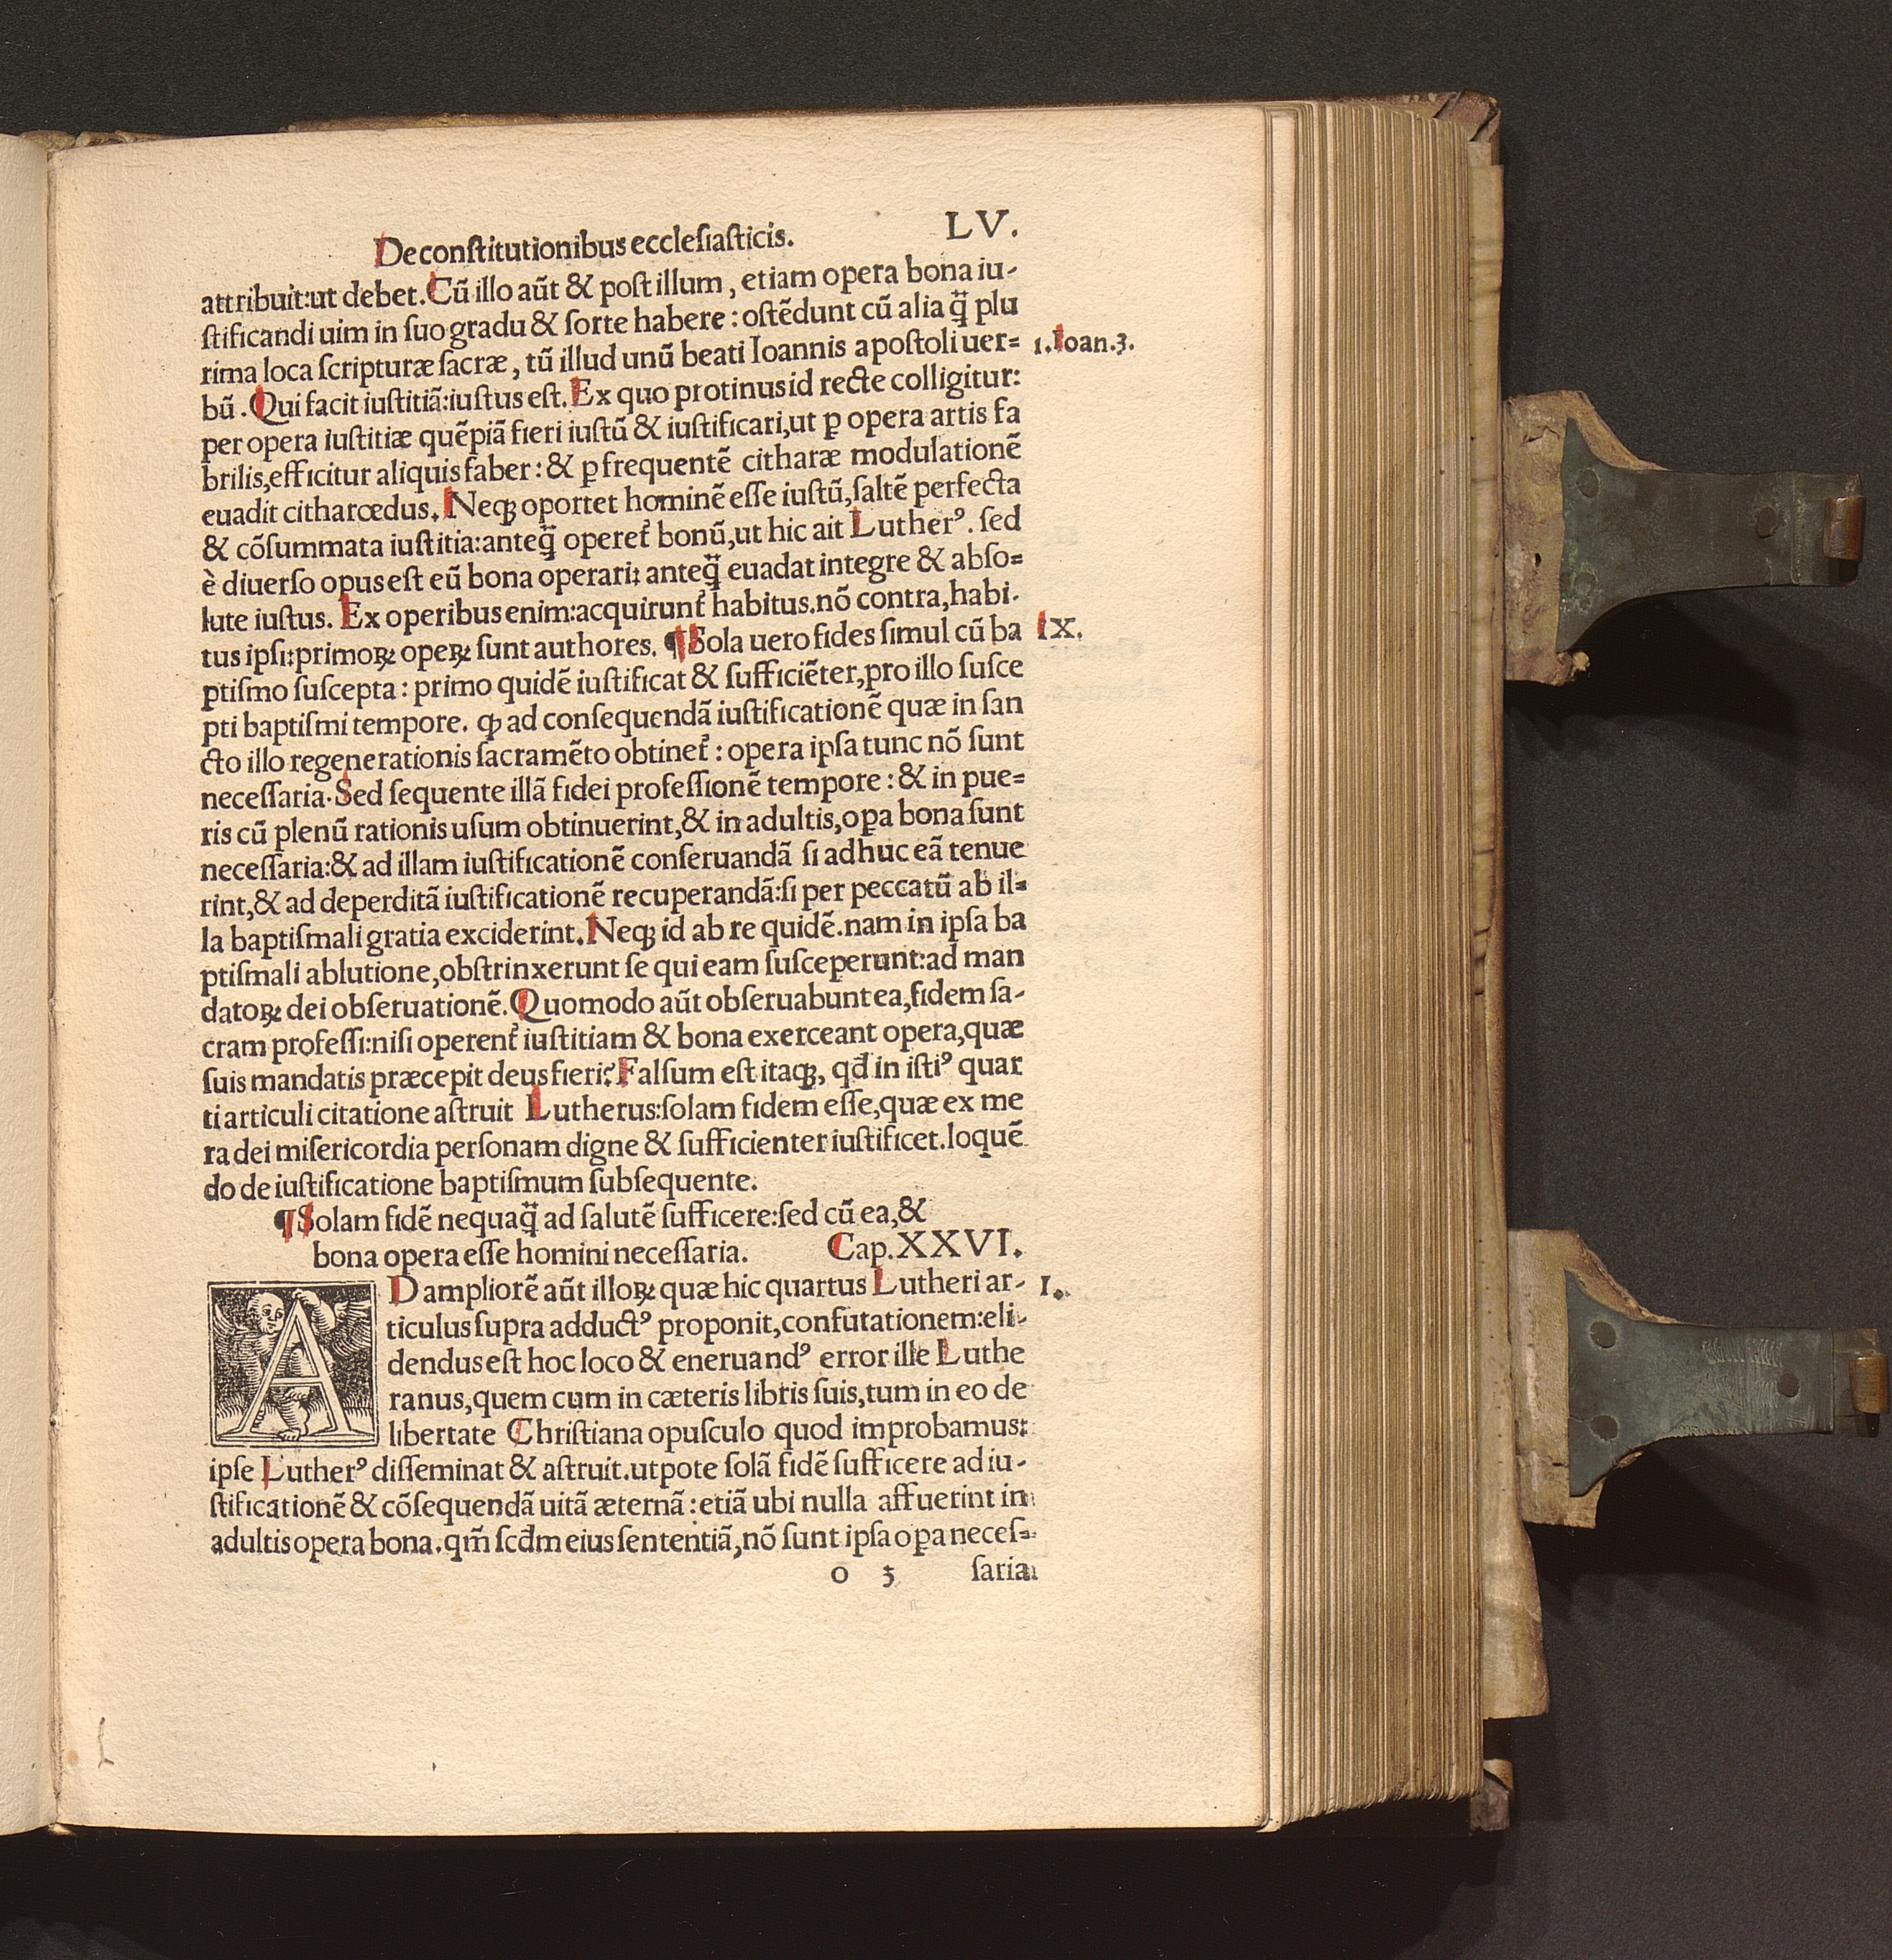 De conſtitutionibus eccleſiaſticis. LV.
attribuit:ut debet. Cũ illo aũt & poſt illum, etiam opera bona iu-
ſtificandi uim in ſuo gradu & ſorte habere: oſtẽdunt cũ alia q̃ plu
rima loca ſcripturæ ſacræ, tũ illud unũ beati Ioannis apoſtoli uer= 1. Ioan.3.
bũ. Qui facit iuſtitiã:iuſtus eſt. Ex quo protinus id recte colligitur:
per opera iuſtitiæ quẽpiã fieri iuſtũ & iuſtificari,ut ꝑ opera artis fa
brilis,efficitur aliquis faber: & ꝑ frequentẽ citharæ modulationẽ
euadit citharœdus. Neqꝫ oportet hominẽ eſſe iuſtũ,ſaltẽ perfecta
& cõſummata iuſtitia:anteq̃ operet᷑ bonũ,ut hic ait Lutherꝰ. ſed
è diuerſo opus eſt eũ bona operari: anteq̃ euadat integre & abſo=
lute iuſtus. Ex operibus enim:acquirunt᷑ habitus.nõ contra,habi-
tus ipſi:primoꝝ opeꝝ ſunt authores. ¶ Sola uero fides ſimul cũ ba IX.
ptiſmo ſuſcepta: primo quidẽ iuſtificat & ſufficiẽter,pro illo ſuſce
pti baptiſmi tempore. ꝙ ad conſequendã iuſtificationẽ quæ in ſan
cto illo regenerationis ſacramẽto obtinet᷑: opera ipſa tunc nõ ſunt
neceſſaria. Sed ſequente illã fidei profeſſionẽ tempore: & in pue=
ris cũ plenũ rationis uſum obtinuerint,& in adultis,oꝑa bona ſunt
neceſſaria:& ad illam iuſtificationẽ conſeruandã ſi adhuc eã tenue
rint,& ad deperditã iuſtificationẽ recuperandã:ſi per peccatũ ab il=
la baptiſmali gratia exciderint. Neqꝫ id ab re quidẽ.nam in ipſa ba
ptiſmali ablutione,obſtrinxerunt ſe qui eam ſuſceperunt:ad man
datoꝝ dei obſeruationẽ. Quomodo aũt obſeruabunt ea,fidem ſa-
cram profeſſi:niſi operent᷑ iuſtitiam & bona exerceant opera,quæ
ſuis mandatis præcepit deus fieri? Falſum eſt itaqꝫ, qđ in iſtiꝰ quar
ti articuli citatione aſtruit Lutherus:ſolam fidem eſſe,quæ ex me
ra dei miſericordia perſonam digne & ſufficienter iuſtificet.loquẽ
do de iuſtificatione baptiſmum ſubſequente.
¶ Solam fidẽ nequaq̃ ad ſalutẽ ſufficere:ſed cũ ea,&
bona opera eſſe homini neceſſaria. Cap. XXVI.
AD ampliorẽ aũt illoꝝ quæ hic quartus Lutheri ar- I.
ticulus ſupra adductꝰ proponit,confutationem:eli-
dendus eſt hoc loco & eneruandꝰ error ille Luthe
ranus,quem cum in cæteris libris ſuis,tum in eo de
libertate Chriſtiana opuſculo quod improbamus:
ipſe Lutherꝰ diſſeminat & aſtruit.utpote ſolã fidẽ ſufficere ad iu-
ſtificationẽ & cõſequendã uitã æternã: etiã ubi nulla affuerint in
adultis opera bona.qm̃ ſcđm eius ſententiã,nõ ſunt ipſa oꝑa neceſ=
o 3 ſaria